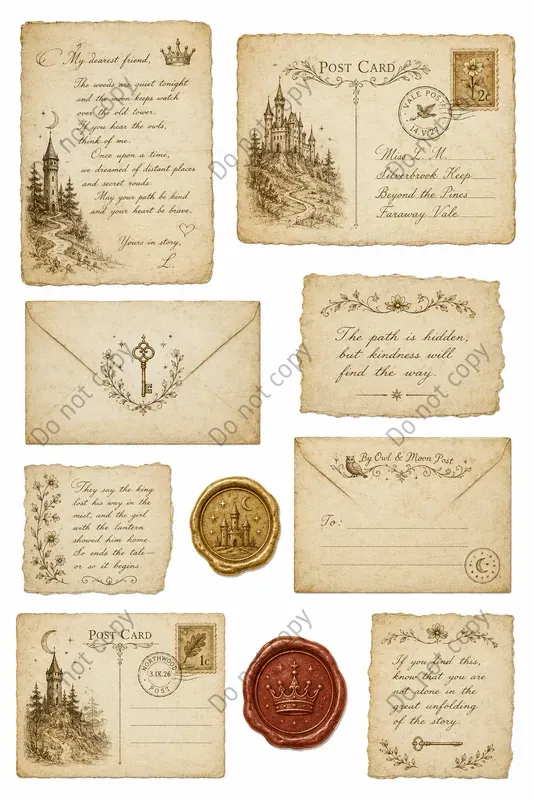 My dearest friend,
The woods are quiet tonight
and the moon keeps watch
over the old tower.
If you hear the owls,
think of me.
Once upon a time,
we dreamed of distant places
and secret roads.
May your path be kind
and your heart be brave.
Yours in story,
L.
POST CARD
VALE POST
14.V.27
2c
Miss L. M.
Silverbrook Keep
Beyond the Pines
Faraway Vale
The path is hidden,
but kindness will
find the way.
By Owl & Moon Post
To:
They say the king
lost his way in the
mist, and the girl
with the lantern
showed him home.
So ends the tale—
or so it begins.
POST CARD
NORTHWOOD
3.IX.26
POST
1c
If you find this,
know that you are
not alone in the
great unfolding
of the story.
Do not copy
Do not copy
Do not copy
Do not copy
Do not copy
Do not copy
Do not copy
Do not copy
Do not copy